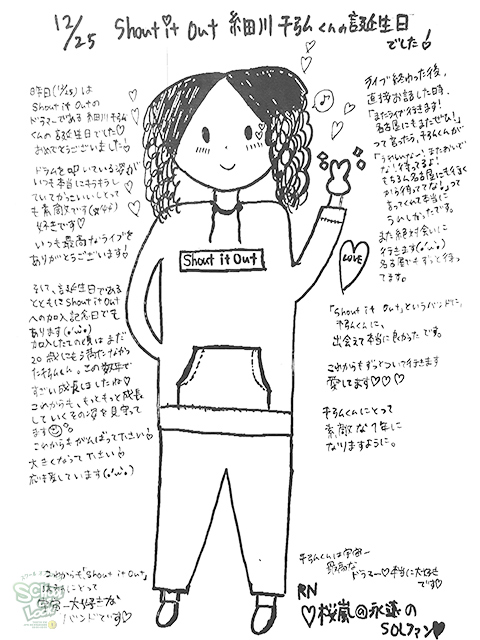 12/25 Shout it Out 細田川 千弘くんの誕生日
でした!
昨日(12/25)は
Shout it Outの
ドラマーである 細田川 千弘
くんの誕生日でした♡
おめでとうございました!
ドラムを叩いている姿が
いつも本当にキラキラし
ていてかっこいいしとって
も素敵です
好きです♡
いつも最高なライブを
ありがとうございます!
そして、誕生日である
とともにShout it Out
への加入記念日でも
あります(o'ω'o)
加入したての頃はまだ
20歳にも満たなかっ
た千弘くん。この数年で
すごい成長しましたね♡
これからも、もっともっと成長
していくその姿を見守って
ます
これからもがんばって下さい!
大きくなって下さい!
応援しています(o'ω'o)
これからも「Shout it Out」
は
宇宙一大好きな
バンドです♡
ライブ終わった後、
直接お話した時、
「またライブ行きます!
名古屋にもまたぜひ!」
って言ったら、千弘くんが
「うれしいな〜!またおいで
な!待ってるよ!
もちろん名古屋にも行く
から待っててな!」って
言ってくれて本当に
うれしかったです。
また絶対会いに
行きます(o'ω'o)
名古屋でもずっと待っ
てます。
Shout it Out
LOVE
「Shout it Out」というバンドに、
千弘くんに、
出会えて本当に良かったです。
これからもずっとついて行きます
愛してます♡♡♡
千弘くんにとって
素敵な1年に
なりますように。
千弘くんは宇宙一
最高な
ドラマー♡本当に大好き
です♡
RN
♡桜嵐@永遠の
SOLファン♥